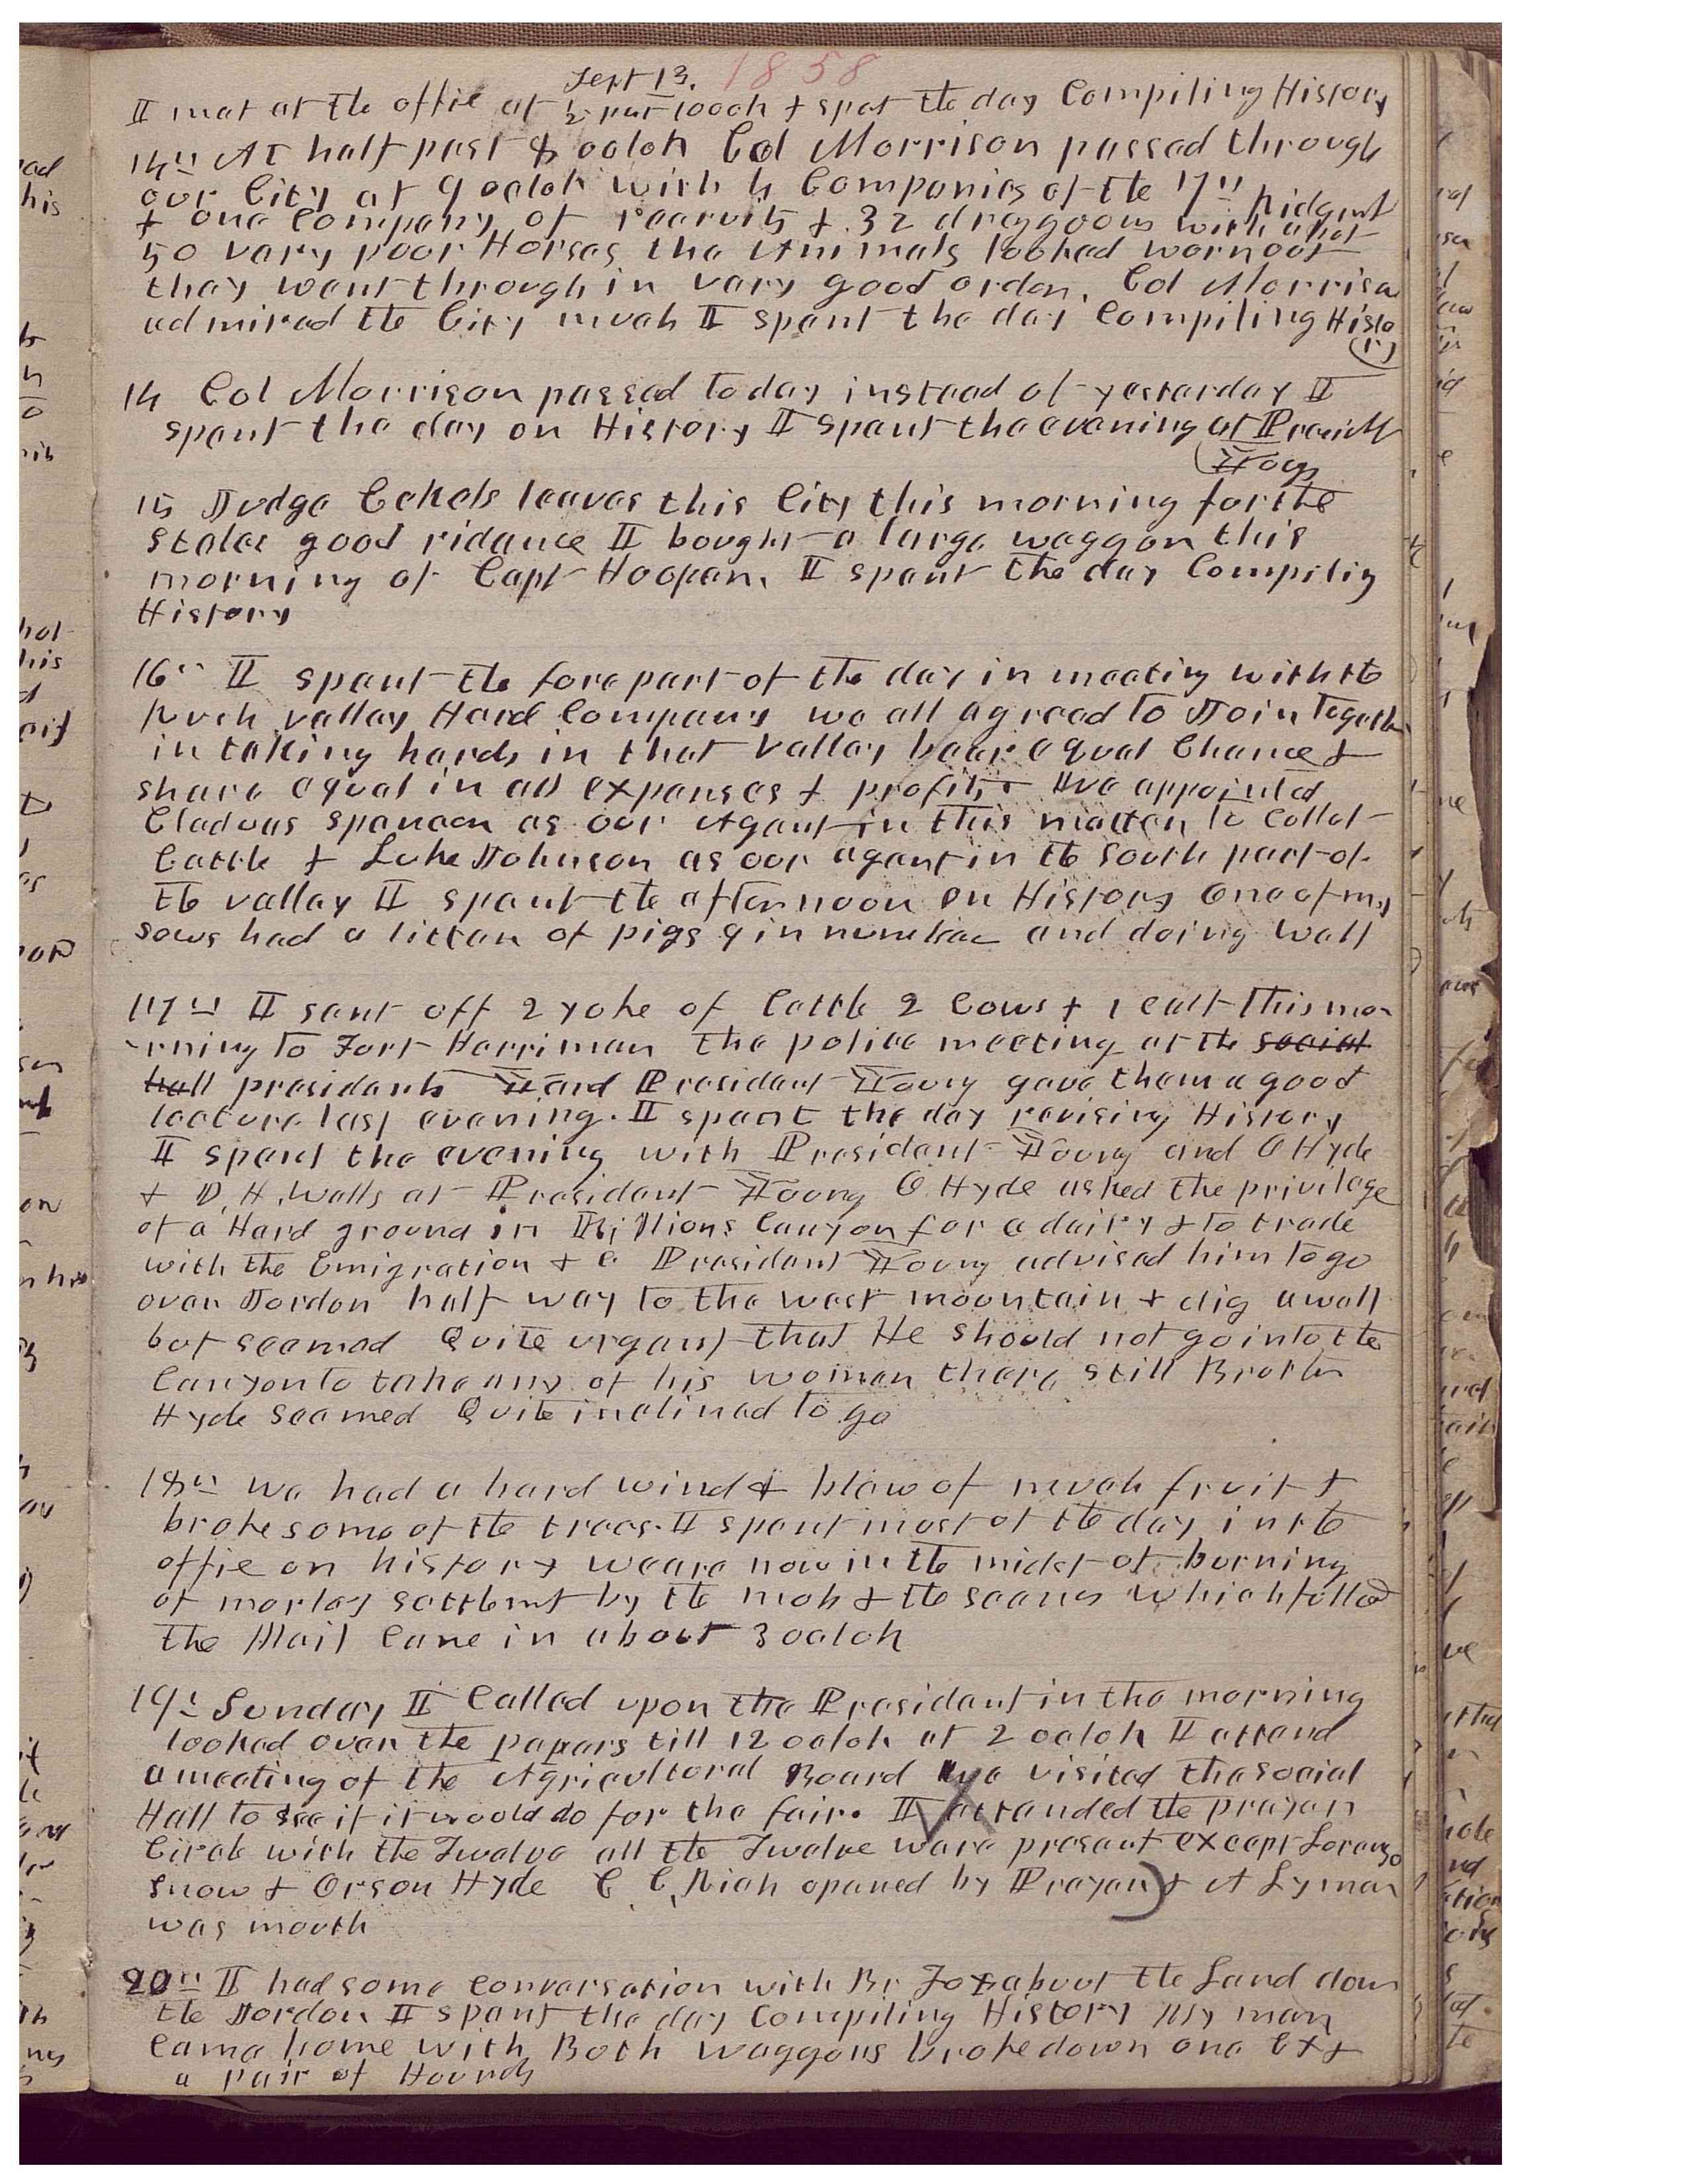 Sept 13. 1858
I met at the offie at ½ past 10 oclk & spet the day Compiling History
14th At half past 8 oclok Col Morrison passed through
our City at 9 oclok with 4 Companies of the 17th Ridgmt
& one company of recruits & 32 draggoons with abot
50 very poor Horses the Animals looked wornout
they went through in very good order. Col Morrison
admired the City much I spent the day Compiling Histo
(ry
14 Col Morrison passed to day instead of yesterday I
spent the day on History I spent the evening at Presidt
(Youngs
15 Judge Eckels leaves this City this morning for the
States good ridance I bought a large waggon this
morning of Capt Hooper. I spent the day Compiling
History
16th I spent the fore part of the day in meeting with the
Ruch valley Herd Company we all agreed to Join Together
in taking herds in that valley bear equal Chance &
share equal in all expenses & profits & we appointed
Cladous Spencer as our Agent in this matter to Collet
Cattle & Luke Johnson as our agent in the South part of
the valley I spent the afternoon on History One of my
sows had a litter of pigs 9 in number and doing well
17th I sent off 2 yoke of Cattle 2 Cows & 1 calf this mo-
-rning to Fort Harriman The police meeting at the social
hall presidents and President Young gave them a good
lecture last evening. I spent the day revising History
I spent the evening with President Young and O Hyde
& D. H. Wells at President Young O. Hyde asked the privilege
of a Herd ground in Killions Canyon for a dairy & to trade
with the Emigration & c President Young advised him to go
over Jordon half way to the west mountain & dig a well
but seemed Quite urgent that He should not go into the
Canyon to take any of his women there, still Brother
Hyde seemed Quite inclined to go
18th We had a hard wind & blew of much fruit &
broke some of the trees. I spent most of the day in the
offie on history we are now in the midst of burning
of morley settlemt by the mob & the scenes which followed
the Mail Came in about 3 oclok
19th Sunday I Called upon the President in the morning
looked over the papers till 12 oclok at 2 oclok I attend
a meeting of the Agricultural Board We visited the social
Hall to see if it would do for the fair. I attended the prayer
Circle with the Twelve all the Twelve were present except Lorenzo
Snow & Orson Hyde C C Rich opened by Prayer & A Lyman
was mouth
20th I had some conversation with Br Fox about the Land down
the Jordon I spent the day Compiling History My men
came home with Both waggons broke down one Ext
a pair of Hounds